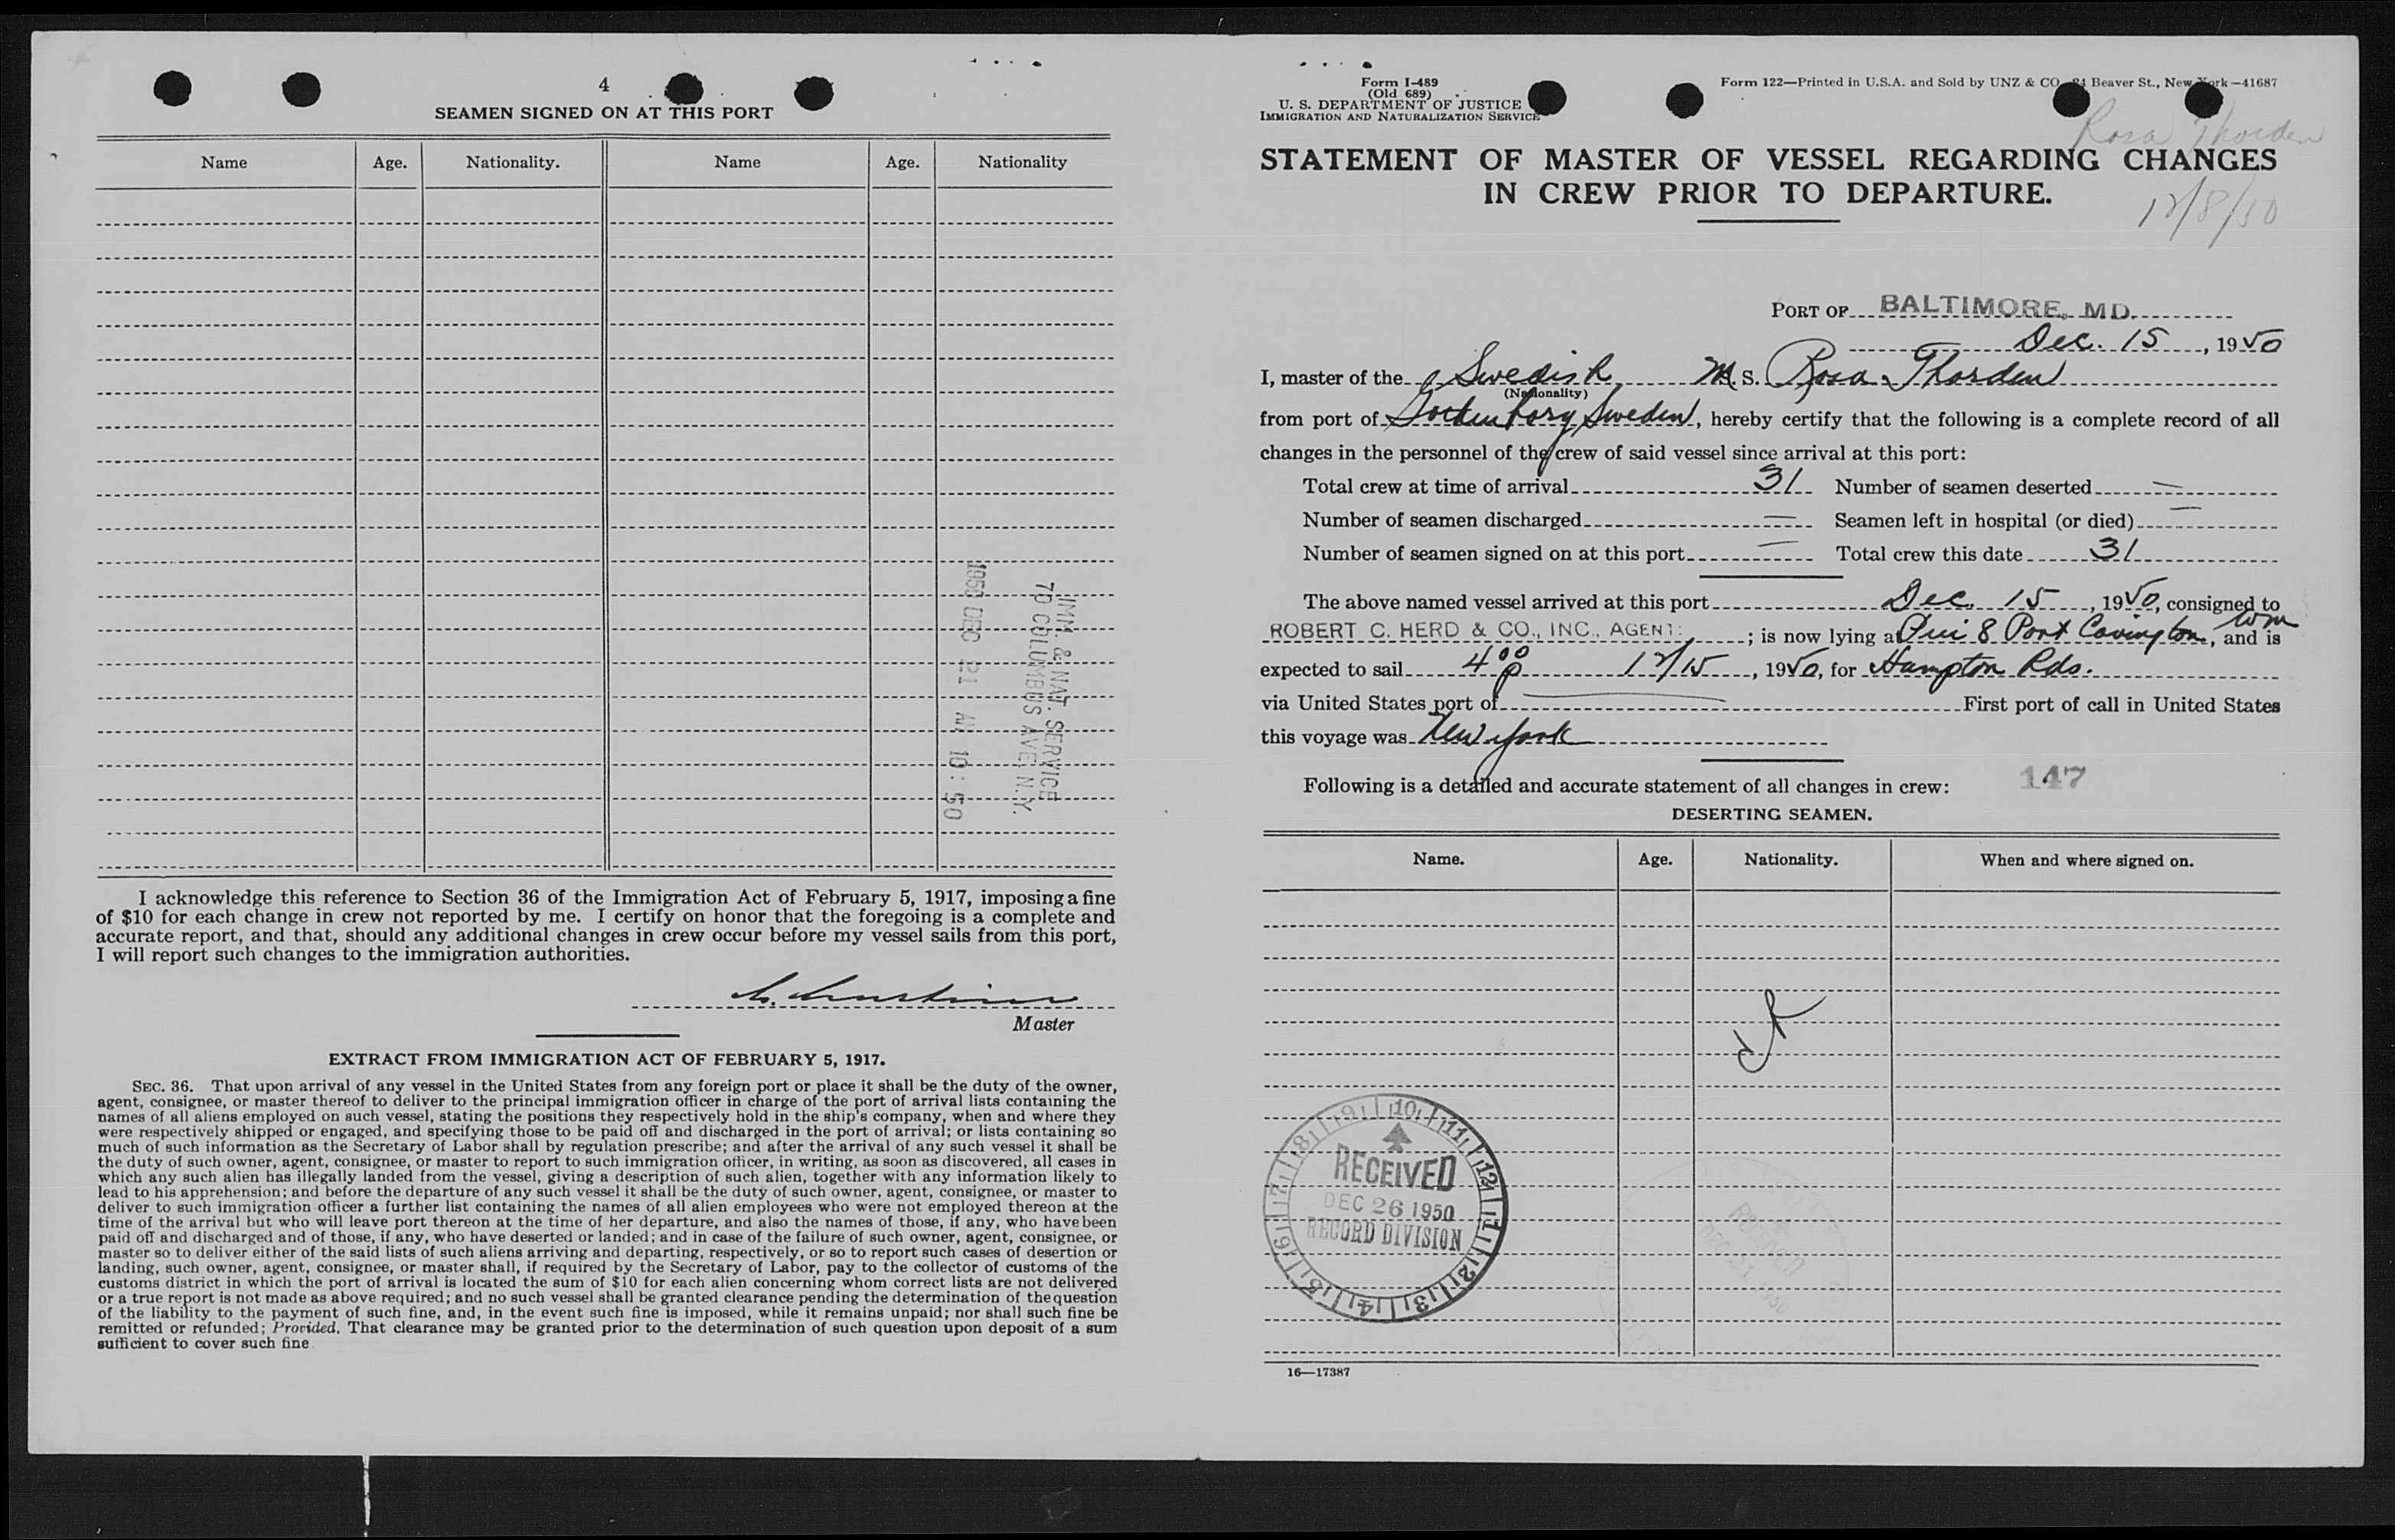 4
SEAMEN SIGNED ON AT THIS PORT
Name Age. Nationality. Name Age. Nationality
IMM. & NAT. SERVICE
70 COLUMBUS AVE. N.Y.
1950 DEC 21 AM 10:50
I acknowledge this reference to Section 36 of the Immigration Act of February 5, 1917, imposing a fine
of $10 for each change in crew not reported by me. I certify on honor that the foregoing is a complete and
accurate report, and that, should any additional changes in crew occur before my vessel sails from this port,
I will report such changes to the immigration authorities.
Master
EXTRACT FROM IMMIGRATION ACT OF FEBRUARY 5, 1917.
SEC. 36. That upon arrival of any vessel in the United States from any foreign port or place it shall be the duty of the owner,
agent, consignee, or master thereof to deliver to the principal immigration officer in charge of the port of arrival lists containing the
names of all aliens employed on such vessel, stating the positions they respectively hold in the ship's company, when and where they
were respectively shipped or engaged, and specifying those to be paid off and discharged in the port of arrival; or lists containing so
much of such information as the Secretary of Labor shall by regulation prescribe; and after the arrival of any such vessel it shall be
the duty of such owner, agent, consignee, or master to report to such immigration officer, in writing, as soon as discovered, all cases in
which any such alien has illegally landed from the vessel, giving a description of such alien, together with any information likely to
lead to his apprehension; and before the departure of any such vessel it shall be the duty of such owner, agent, consignee, or master to
deliver to such immigration officer a further list containing the names of all alien employees who were not employed thereon at the
time of the arrival but who will leave port thereon at the time of her departure, and also the names of those, if any, who have been
paid off and discharged and of those, if any, who have deserted or landed; and in case of the failure of such owner, agent, consignee, or
master so to deliver either of the said lists of such aliens arriving and departing, respectively, or so to report such cases of desertion or
landing, such owner, agent, consignee, or master shall, if required by the Secretary of Labor, pay to the collector of customs of the
customs district in which the port of arrival is located the sum of $10 for each alien concerning whom correct lists are not delivered
or a true report is not made as above required; and no such vessel shall be granted clearance pending the determination of the question
of the liability to the payment of such fine, and, in the event such fine is imposed, while it remains unpaid; nor shall such fine be
remitted or refunded; Provided, That clearance may be granted prior to the determination of such question upon deposit of a sum
sufficient to cover such fine.
Form I-489
(Old 689)
U. S. DEPARTMENT OF JUSTICE
IMMIGRATION AND NATURALIZATION SERVICE
Form 122—Printed in U.S.A. and Sold by UNZ & CO. 24 Beaver St., New York—41687
Rosa Thorden
STATEMENT OF MASTER OF VESSEL REGARDING CHANGES
IN CREW PRIOR TO DEPARTURE.
12/8/50
PORT OF BALTIMORE, MD.
Dec. 15, 1950
I, master of the Swedish M. S. Rosa Thorden
(Nationality)
from port of Gothenborg Sweden, hereby certify that the following is a complete record of all
changes in the personnel of the crew of said vessel since arrival at this port:
Total crew at time of arrival 31 Number of seamen deserted —
Number of seamen discharged — Seamen left in hospital (or died) —
Number of seamen signed on at this port — Total crew this date 31
The above named vessel arrived at this port Dec. 15, 1950, consigned to
ROBERT C. HERD & CO., INC., AGENT; is now lying at Pier 8 Port Covington, and is
expected to sail 4 00 p 12/15, 1950, for Hampton Rds.
via United States port of — First port of call in United States
this voyage was New York
Following is a detailed and accurate statement of all changes in crew: 147
DESERTING SEAMEN.
Name. Age. Nationality. When and where signed on.
RECEIVED
DEC 26 1950
RECORD DIVISION
16—17387